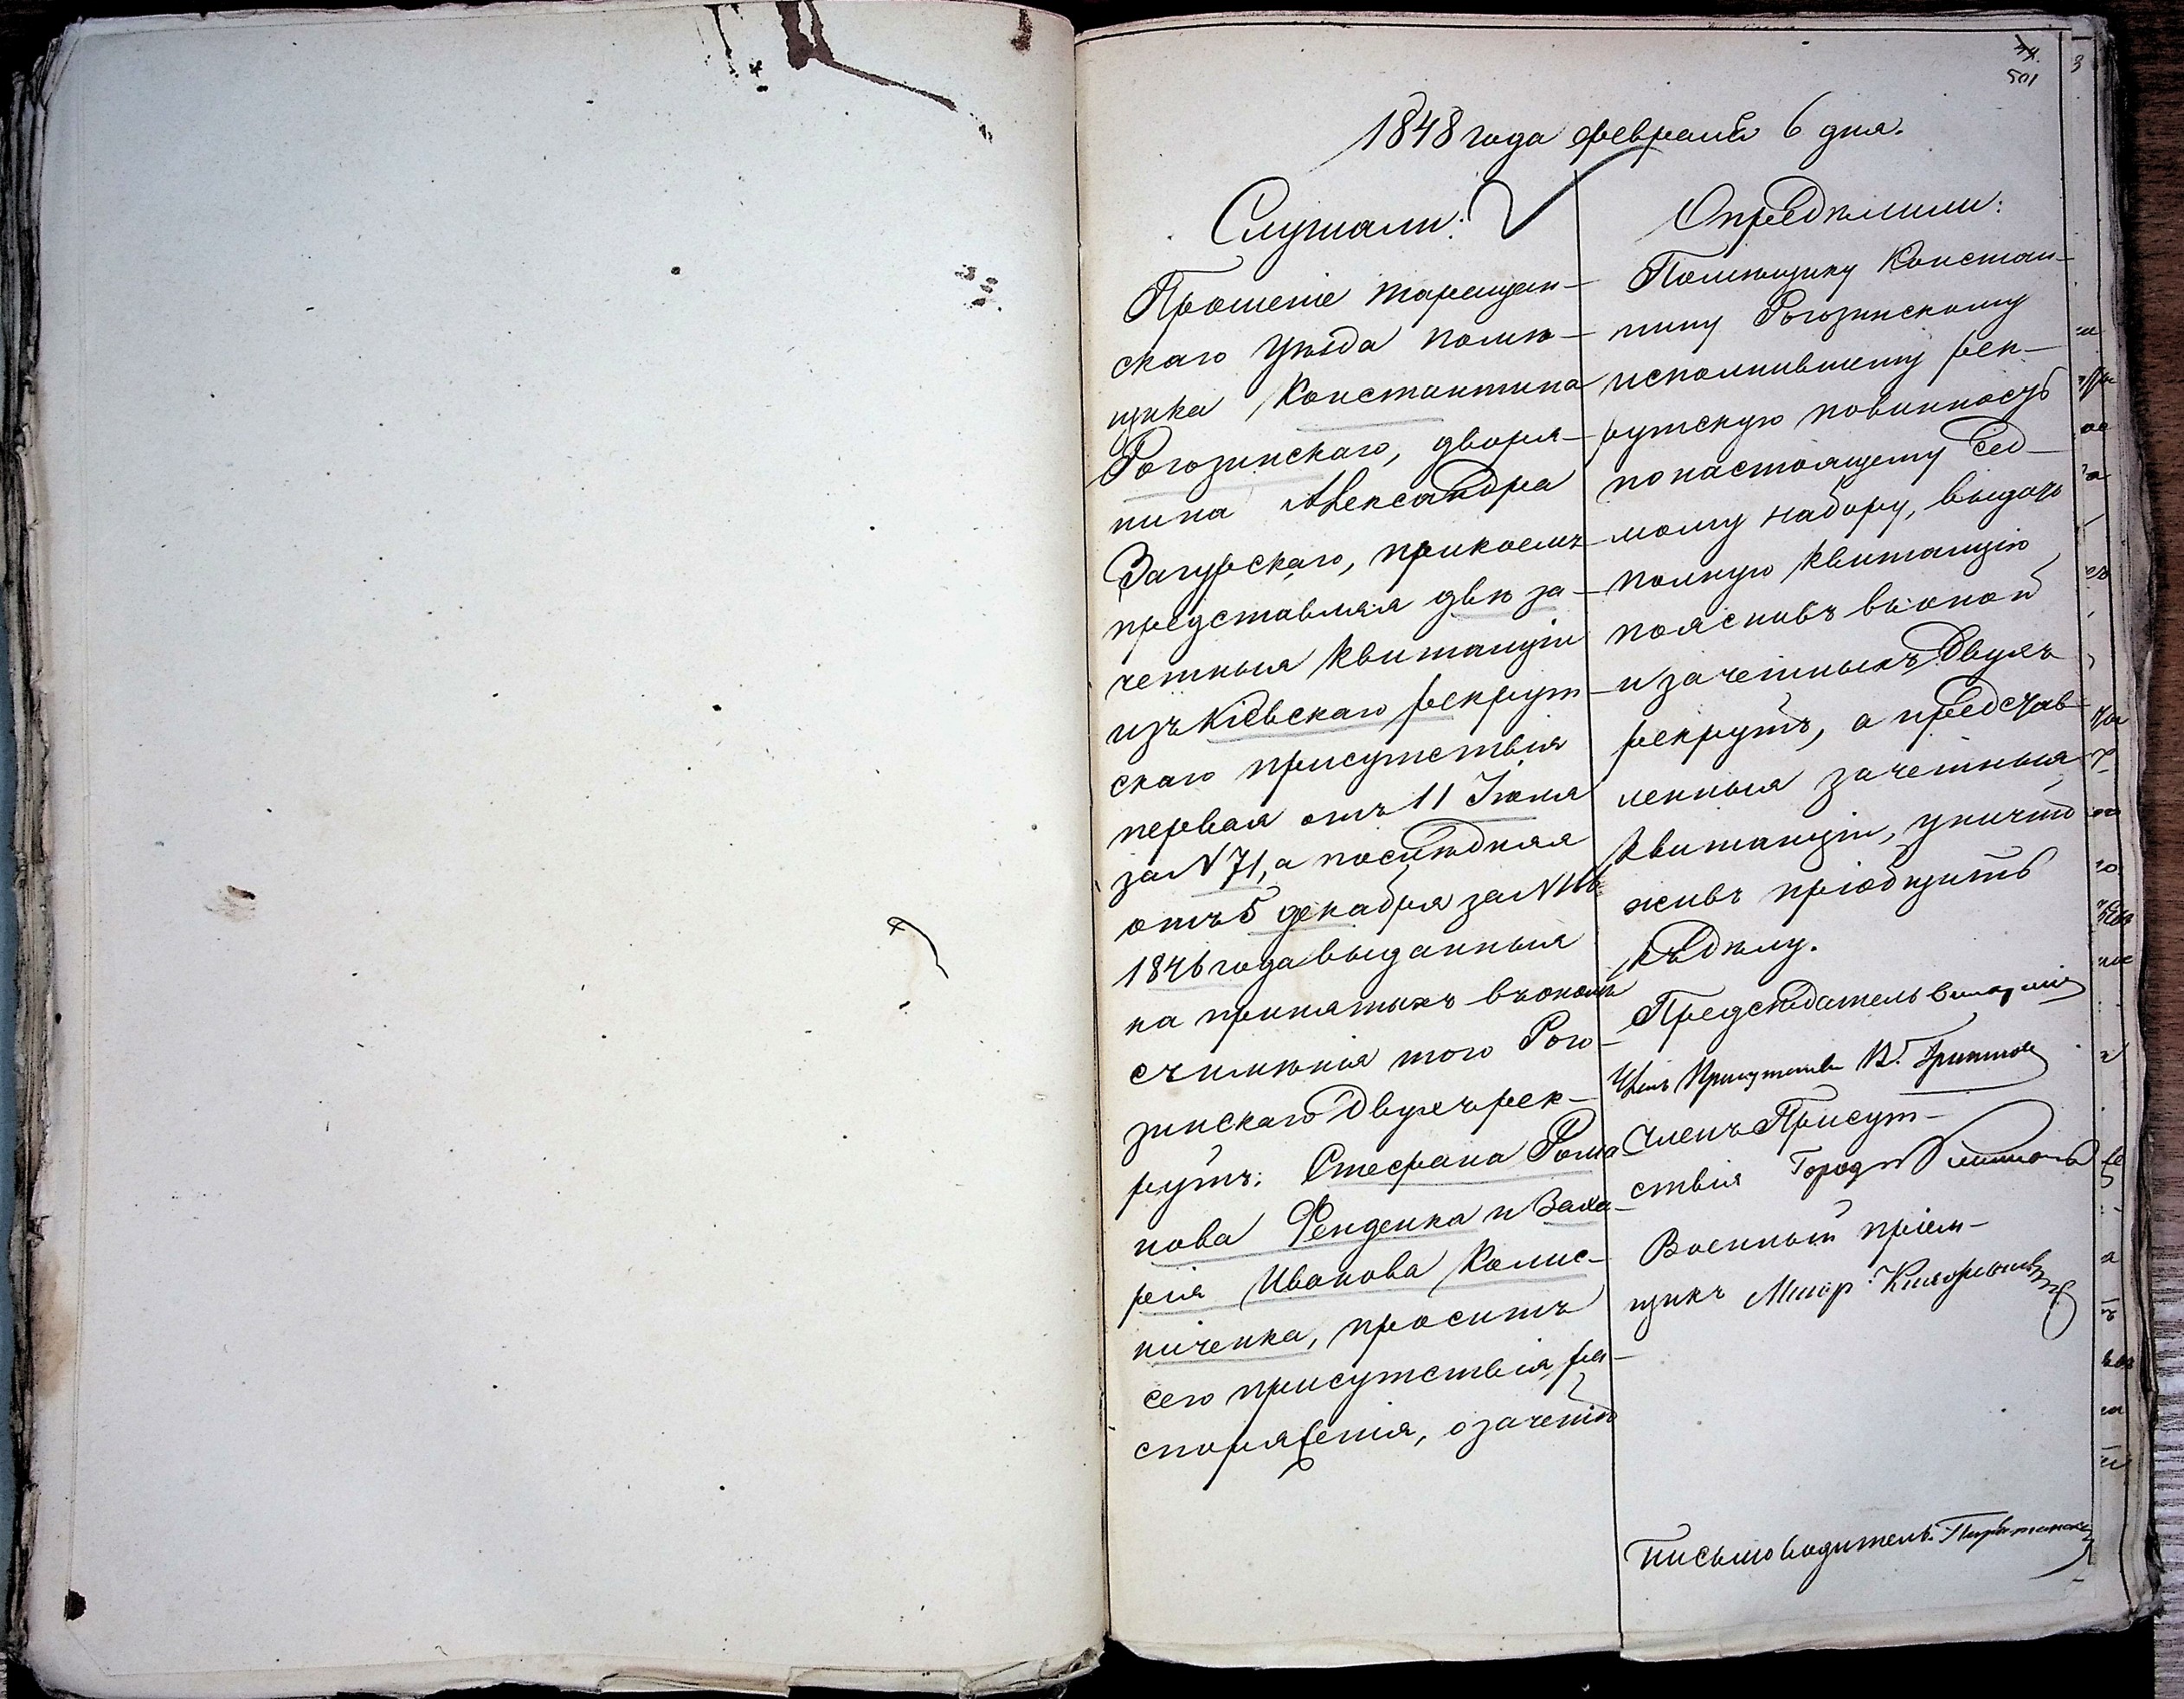 501
1848 года февраля 6 дня.
Слушали:
Прошеніе Таращан-
скаго уѣзда помѣ-
щика Константина
Рогозинскаго, дворя-
нина Александра
Загурскаго, прикоемъ
представляя двѣ за-
четныя квитанціи
изъ Кіевскаго рекрут-
скаго присутствія
первая отъ 11 Іюня
за N 71, а послѣдняя
отъ 5 декабря за N
1846 года выданныя
на принятыхъ въономъ
съимѣнія того Рого-
зинскаго двухъ рек-
рутъ: Стефана Рома
нова Фенденка и Заха-
рія Иванова Колис-
ниченка, проситъ
сего присутствія, ра-
споряженія, о зачетѣ
Опредѣлили:
Помѣщику Констан-
тину Рогозинскому
исполнившему рек-
рутскую повинность
по настоящему сед-
мому набору, выдать
полную квитанцію
пояснивъ въ оной
и зачетныхъ двухъ
рекрутъ, а представ-
ленныя зачетныя
квитанціи, уничто
живъ пріобщить
къ дѣлу.
Предсѣдатель
Членъ Присутствія
Членъ Присут-
ствія Город
Военный пріем-
щикъ Маіор
Письмоводитель